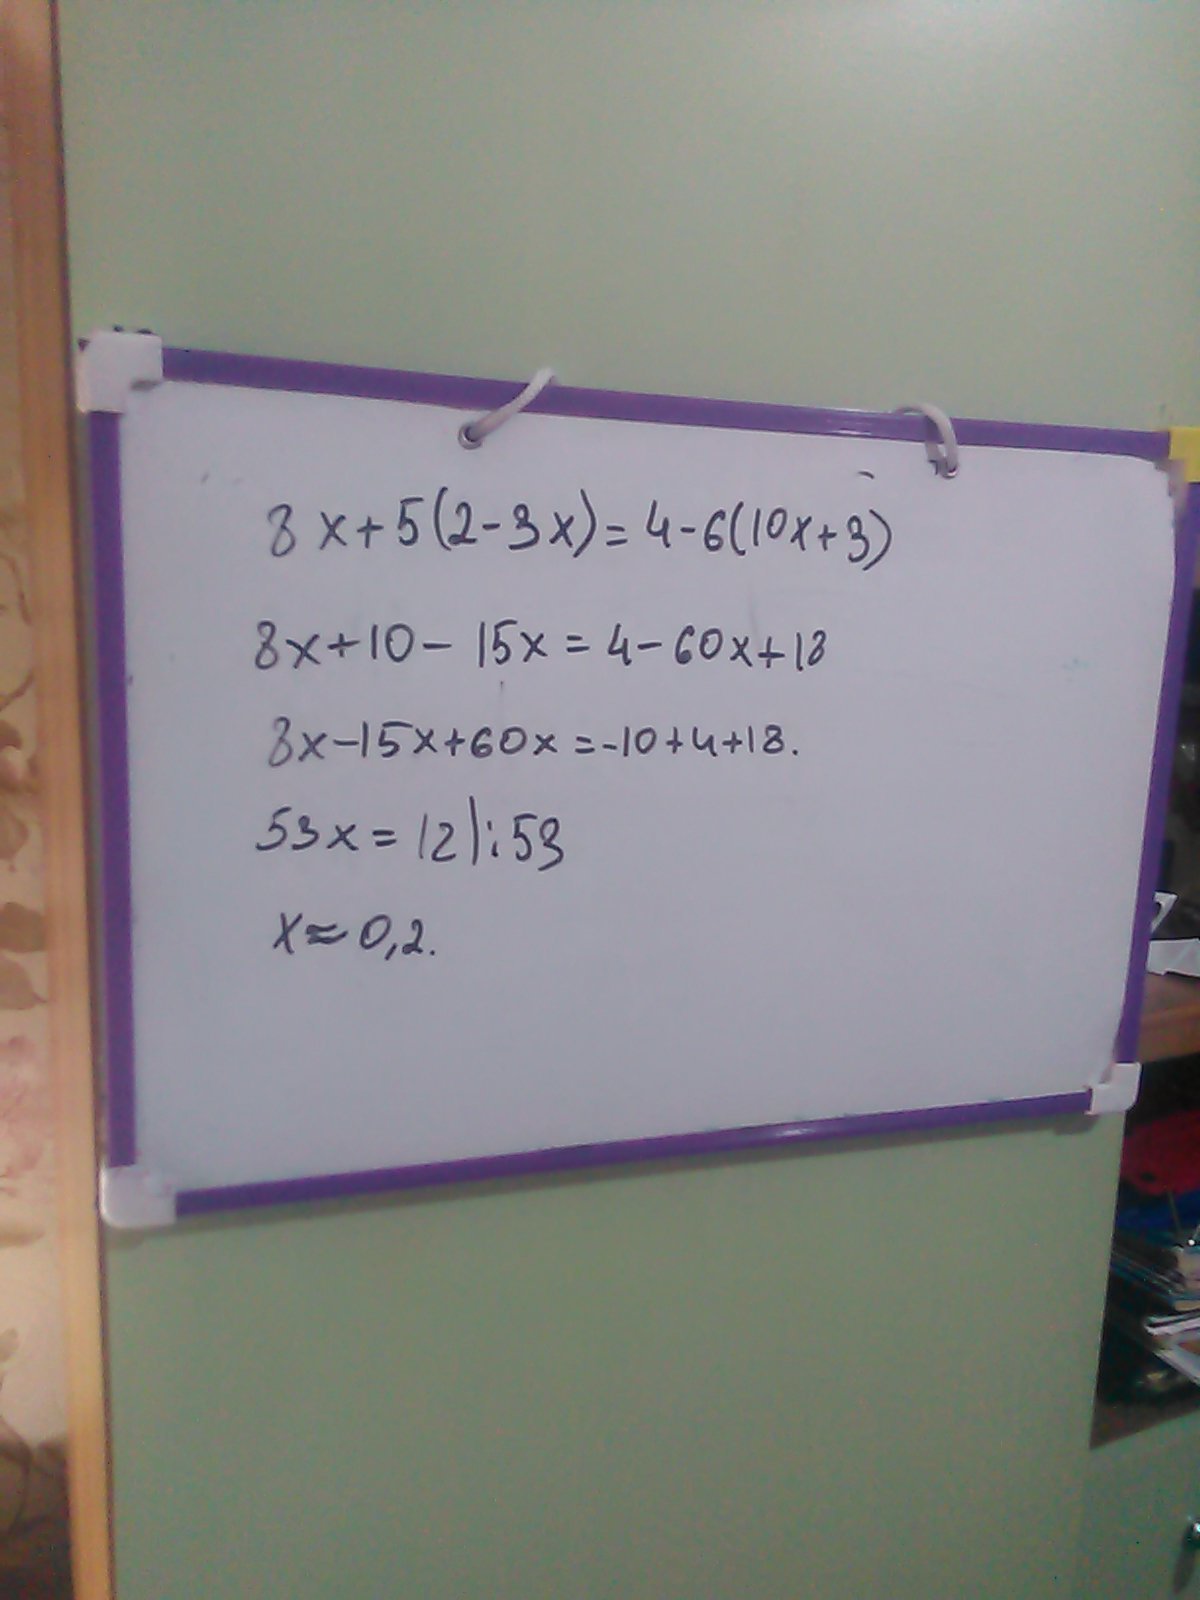 8x+5(2-3x)=4-6(10x+3)
8x+10-15x=4-60x+18
8x-15x+60x=-10+4+18.
53x=12|:53
x≈0,2.